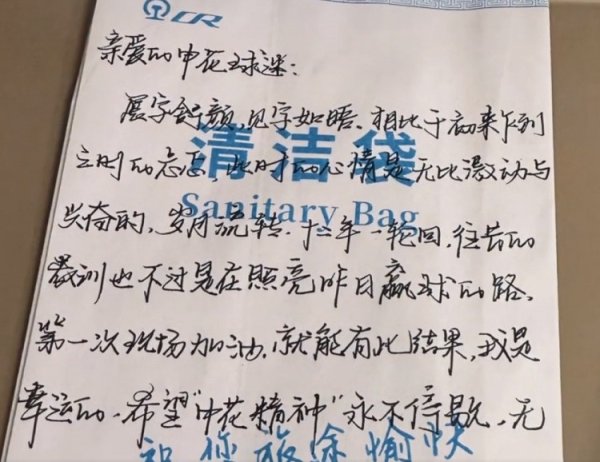 CR
亲爱的申花球迷：
展字舒颜，见字如晤。相比于初来乍到
清洁袋
之时的忐忑，此时的心情是无比激动与
Sanitary Bag
兴奋的，岁月流转，十二年一轮回，往昔的
教训也不过是在照亮昨日赢球的路。
第一次现场加油，就能有此结果，我是
幸运的。希望“申花精神”永不停歇，无
祝您旅途愉快